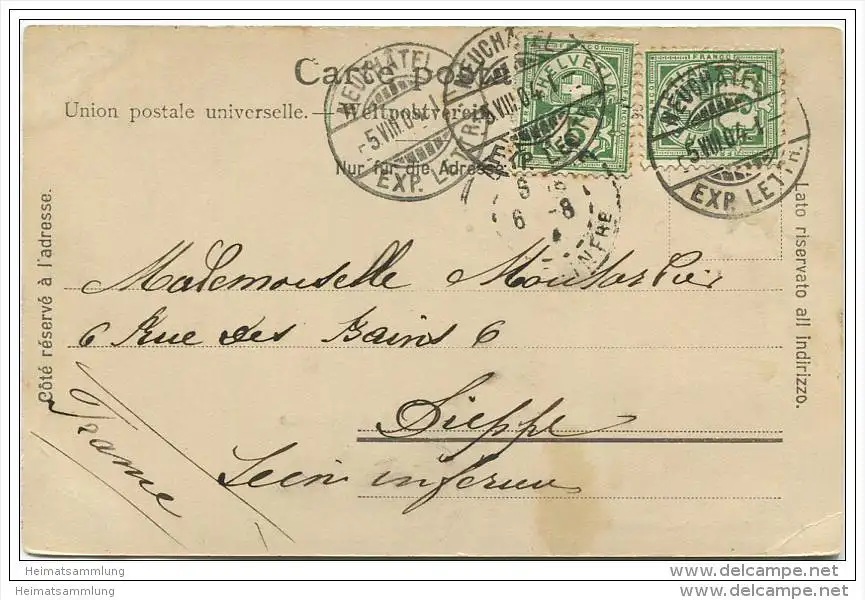 Carte posta
Union postale universelle. — Weltpostverein
Nur für die Adresse
NEUCHATEL
-5.VIII.04-1
EXP. LETTR.
NEUCHATEL
-5.VIII.04-1
EXP. LETTR.
HELVETIA
FRANCO
NEUCHATEL
-5.VIII.04-1
EXP. LETTR.
6 -8
INFRE
Côté réservé à l'adresse.
Lato riservato all indirizzo.
Mademoiselle
6 Rue des Bains 6
Dieppe
Sein inferieu
France
Heimatsammlung
Heimatsammlung
www.delcampe.net
www.delcampe.net